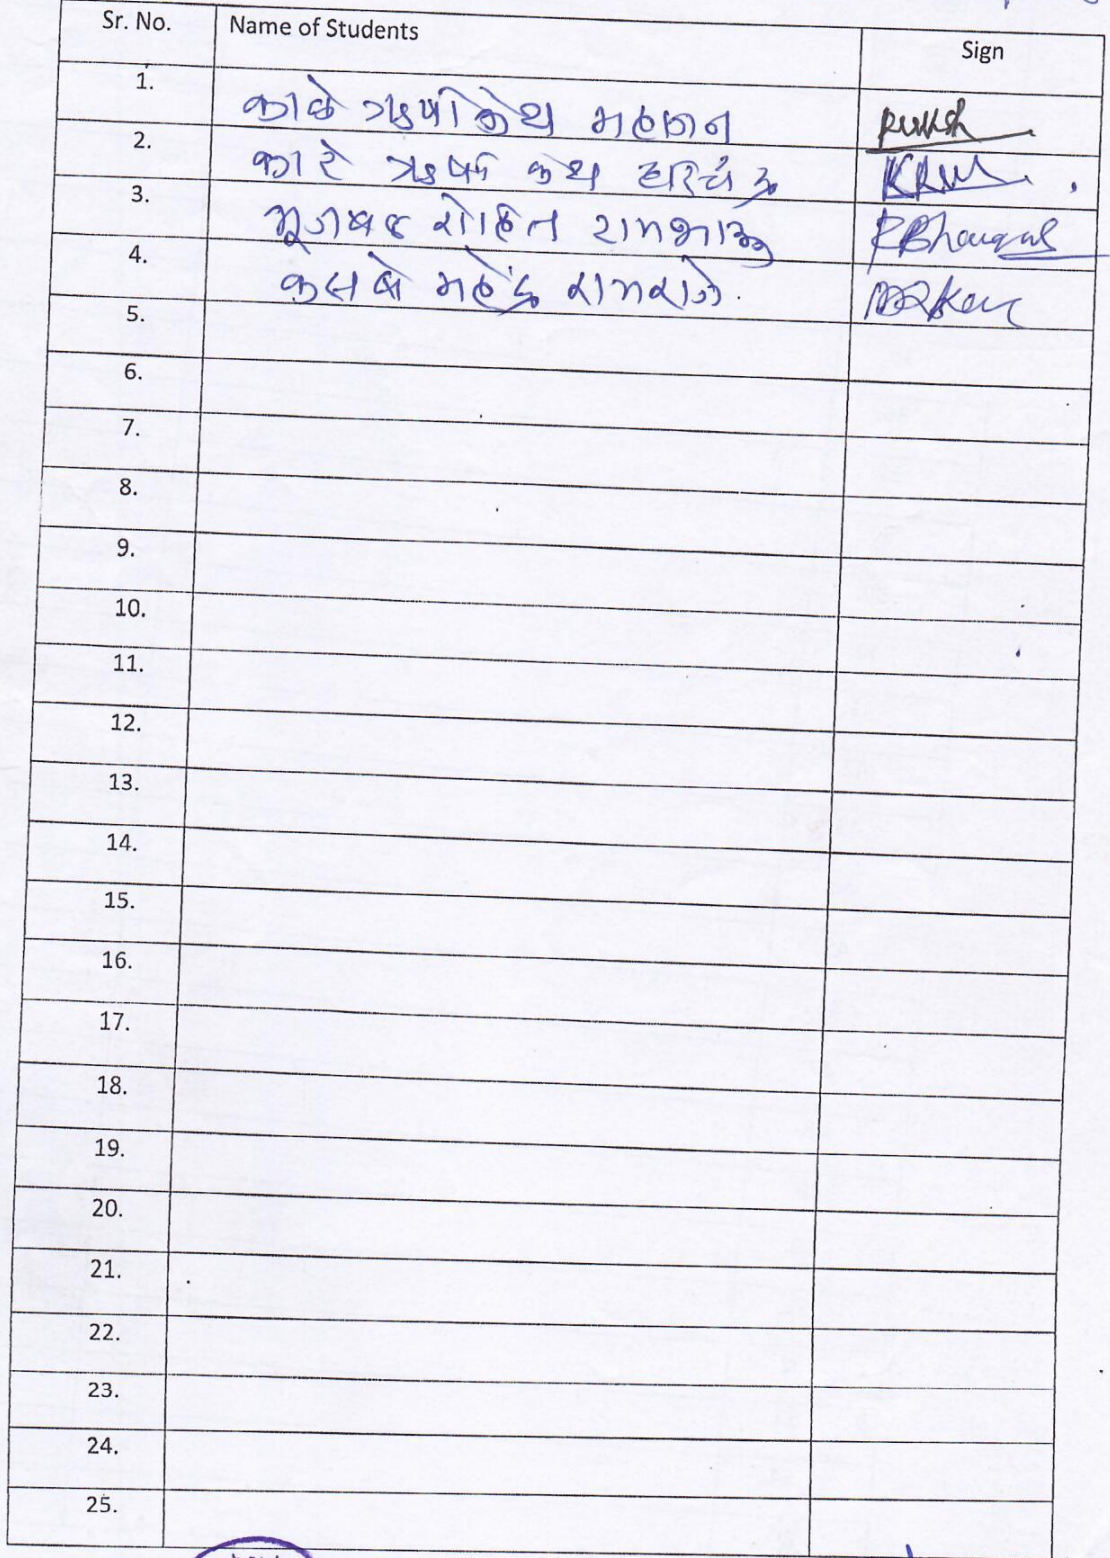 Sr. No. Name of Students Sign
1. काळे ऋषीकेश महाजन
2. कारे ऋषीकेश हरिचंद्र
3. भूजबळ रोहित रामभाऊ RBhangal
4. कसबे महेंद्र रामराजे
5.
6.
7.
8.
9.
10.
11.
12.
13.
14.
15.
16.
17.
18.
19.
20.
21.
22.
23.
24.
25.